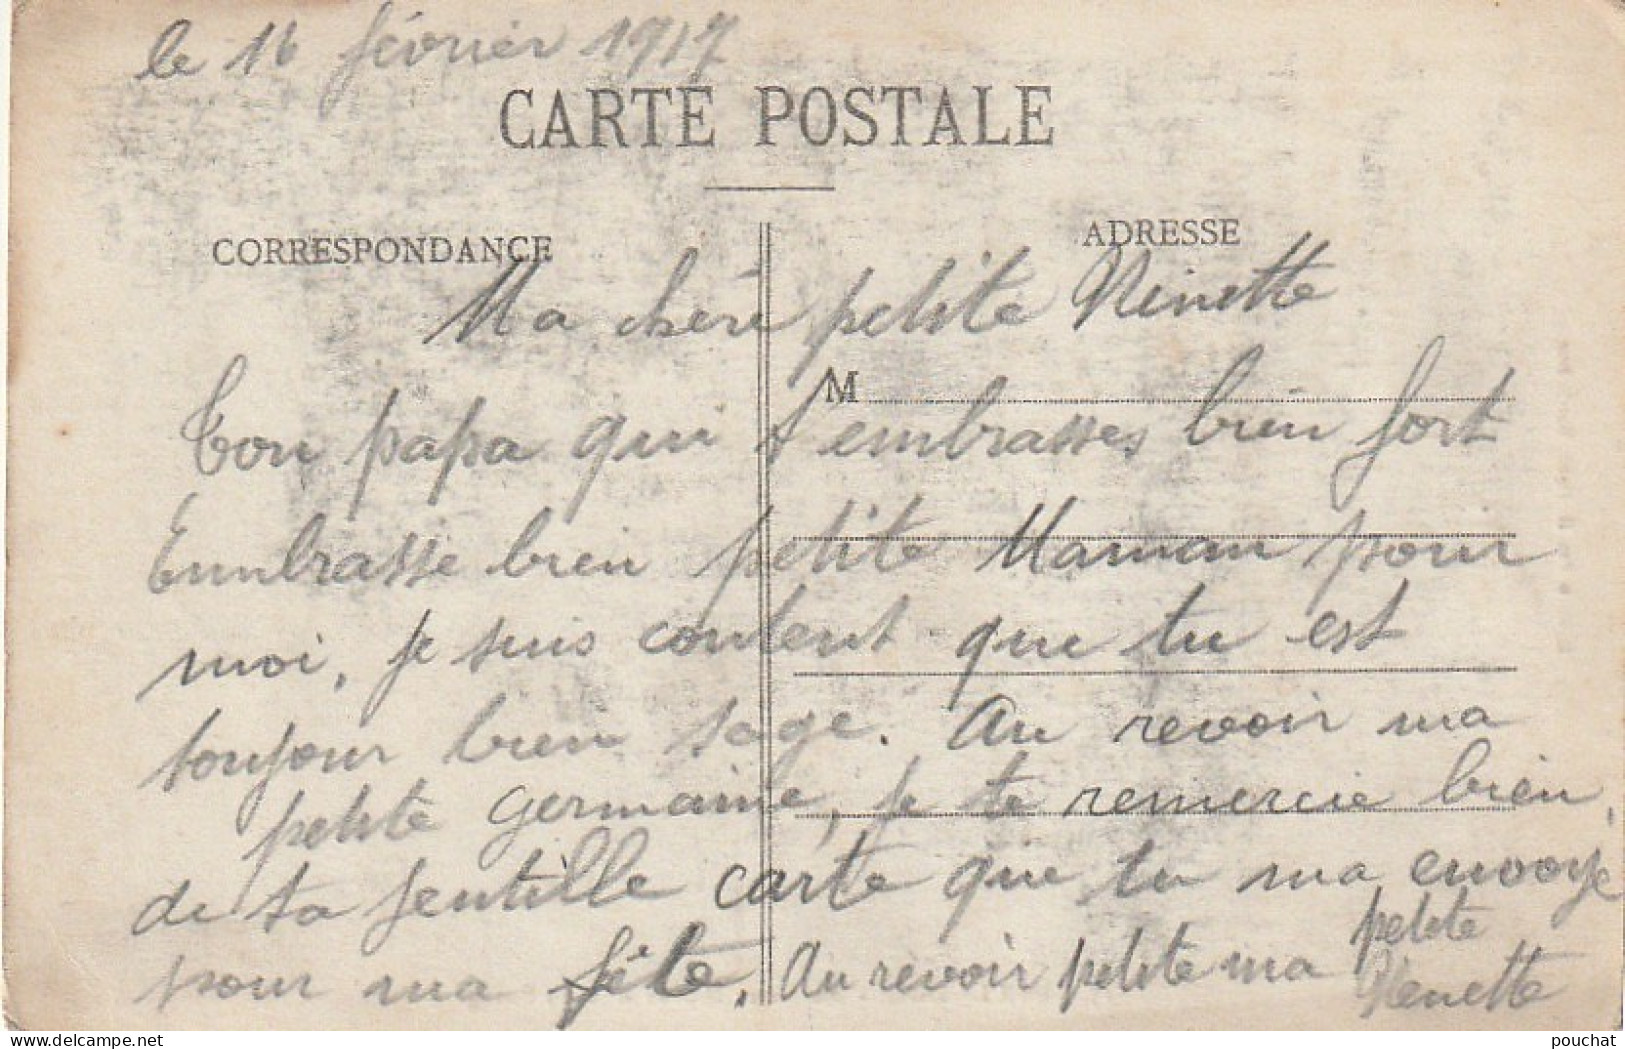 le 16 février 1917
CARTE POSTALE
CORRESPONDANCE
ADRESSE
Ma chère petite Ninette
M
Ton papa qui t'embrasses bien fort
Embrasse bien petite Maman pour
moi, je suis content que tu est
toujour bien sage. Au revoir ma
petite Germaine, je te remercie bien
de ta gentille carte que tu ma envoyé
pour ma fête. Au revoir petite ma petite
Nenette
delcampe.net
pouchat